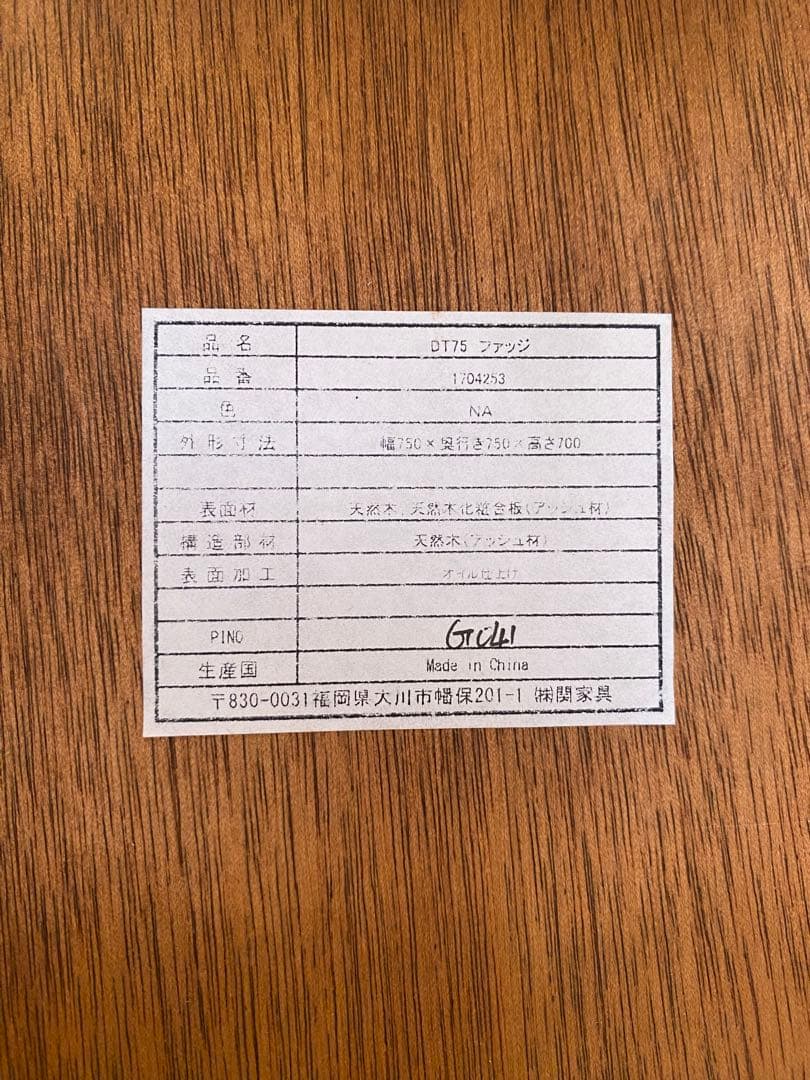 品名 DT75 ファッジ
品番 1704253
色 NA
外形寸法 幅750×奥行き750×高さ700
表面材 天然木、天然木化粧合板(アッシュ材)
構造部材 天然木(アッシュ材)
表面加工 オイル仕上げ
PINO
生産国 Made in China
〒830-0031福岡県大川市幡保201-1 ㈱関家具